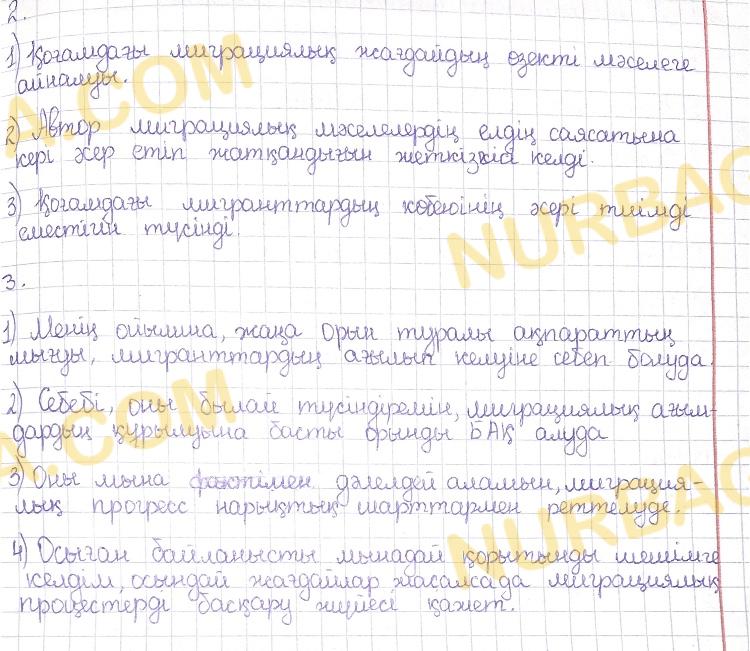 2.
1) Қоғамдағы миграциялық жағдайдың өзекті мәселеге
айналуы.
2) Автор миграциялық мәселелердің елдің саясатына
кері әсер етіп жатқандығын жеткізкісі келді.
3) Қоғамдағы мигранттардың көбеюінің әсері тиімді
еместігін түсінді.
3.
1) Менің ойымша, жаңа орын туралы ақпараттың
мығды, мигранттардың ағылып келуіне себеп болуда.
2) Себебі, оны былай түсіндіремін, миграциялық ағым-
дардың құрылуына басты орынды БАҚ алуда
3) Оны мына фактімен дәлелдей аламын, миграция-
лық прогресс нарықтық шарттармен реттелуде.
4) Осыған байланысты мынадай қорытынды шешімге
келдім, осындай жағдайлар жасалсада миграциялық
процестерді басқару жүйесі қажет.
A.COM
NURBAG
A.COM
NURBAG